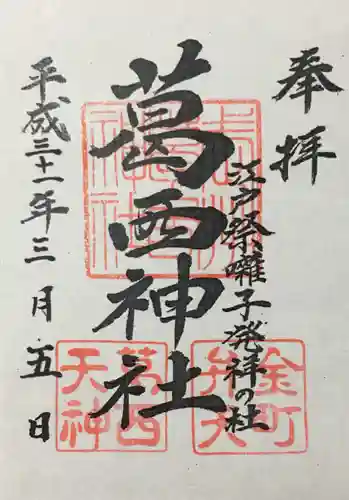 奉拝
江戸祭囃子発祥の社
葛西神社
平成三十一年三月五日
葛西神社
葛西天神
金町弁天